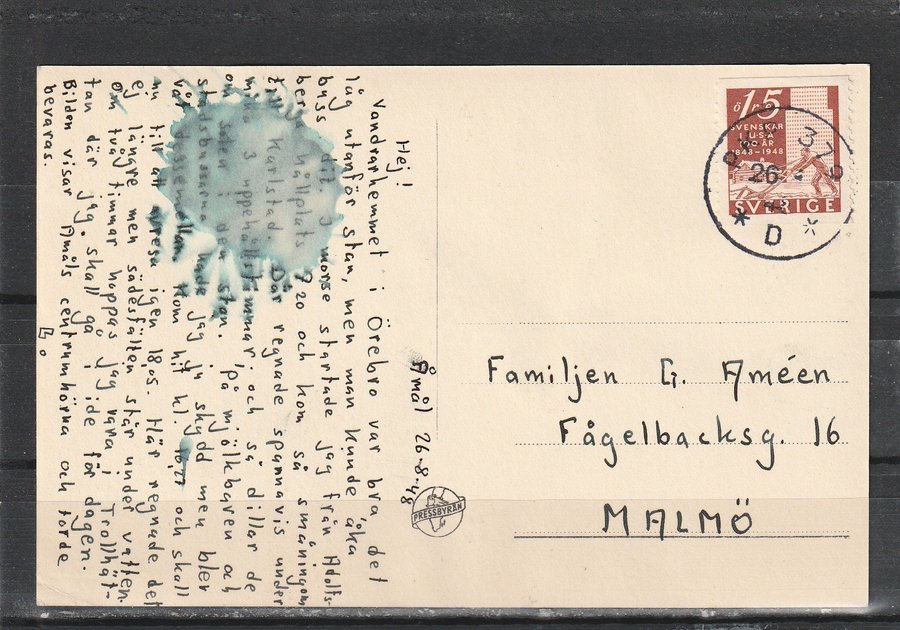 Åmål 26-8-48
Hej!
Vandrarhemmet i Örebro var bra, det
låg utanför stan, men man kunde åka
buss dit. I morse startade jag från Adolfs-
bergs hållplats 7.20 och kom så småningom
till Karlstad. Där regnade spannavis under
mina 3 uppehållstimmar och så dillar de
om säden i den stan. I på mjölkbaren och
stadsbussarna hade jag ju skydd men blev
våt dessemellan. Kom hit kl. och skall
nu till att avresa igen 18.05. Här regnade det
ej längre men sädesfälten står under vatten.
Om två timmar hoppas jag vara i Trollhät-
tan där jag skall gå i ide för dagen.
Bilden visar Åmåls centrumhörna och torde
bevaras.
Bo
PRESSBYRÅN
öre 15
SVENSKAR
I USA
100 ÅR
1848-1948
SVERIGE
379
26
D
Familjen G. Améen
Fågelbacksg. 16
MALMÖ